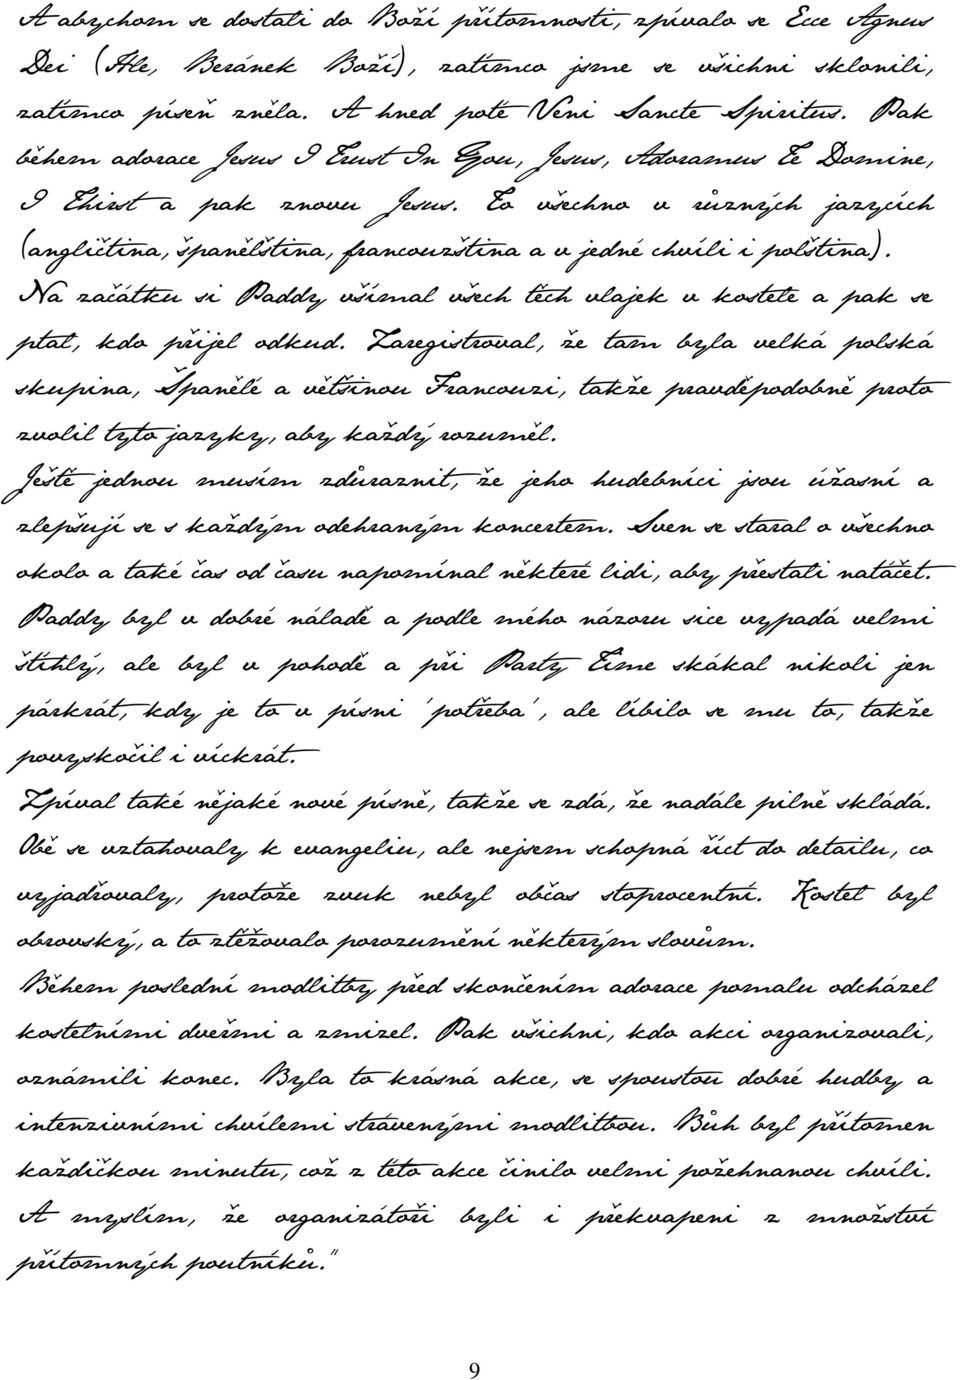 A abychom se dostali do Boží přítomnosti, zpívalo se Ecce Agnus
Dei (Hle, Beránek Boží), zatímco jsme se všichni sklonili,
zatímco píseň zněla. A hned poté Veni Sancte Spiritus. Pak
během adorace Jesus I Trust In You, Jesus, Adoramus Te Domine,
I Thirst a pak znovu Jesus. To všechno v různých jazycích
(angličtina, španělština, francouzština a v jedné chvíli i polština).
Na začátku si Paddy všímal všech těch vlajek v kostele a pak se
ptal, kdo přijel odkud. Zaregistroval, že tam byla velká polská
skupina, Španělé a většinou Francouzi, takže pravděpodobně proto
zvolil tyto jazyky, aby každý rozuměl.
Ještě jednou musím zdůraznit, že jeho hudebníci jsou úžasní a
zlepšují se s každým odehraným koncertem. Sven se staral o všechno
okolo a také čas od času napomínal některé lidi, aby přestali natáčet.
Paddy byl v dobré náladě a podle mého názoru sice vypadá velmi
štíhlý, ale byl v pohodě a při Party Time skákal nikoli jen
párkrát, kdy je to v písni 'potřeba', ale líbilo se mu to, takže
povyskočil i víckrát.
Zpíval také nějaké nové písně, takže se zdá, že nadále pilně skládá.
Obě se vztahovaly k evangeliu, ale nejsem schopná říct do detailu, co
vyjadřovaly, protože zvuk nebyl občas stoprocentní. Kostel byl
obrovský, a to ztěžovalo porozumění některým slovům.
Během poslední modlitby před skončením adorace pomalu odcházel
kostelními dveřmi a zmizel. Pak všichni, kdo akci organizovali,
oznámili konec. Byla to krásná akce, se spoustou dobré hudby a
intenzivními chvílemi strávenými modlitbou. Bůh byl přítomen
každičkou minutu, což z této akce činilo velmi požehnanou chvíli.
A myslím, že organizátoři byli i překvapeni z množství
přítomných poutníků."
9